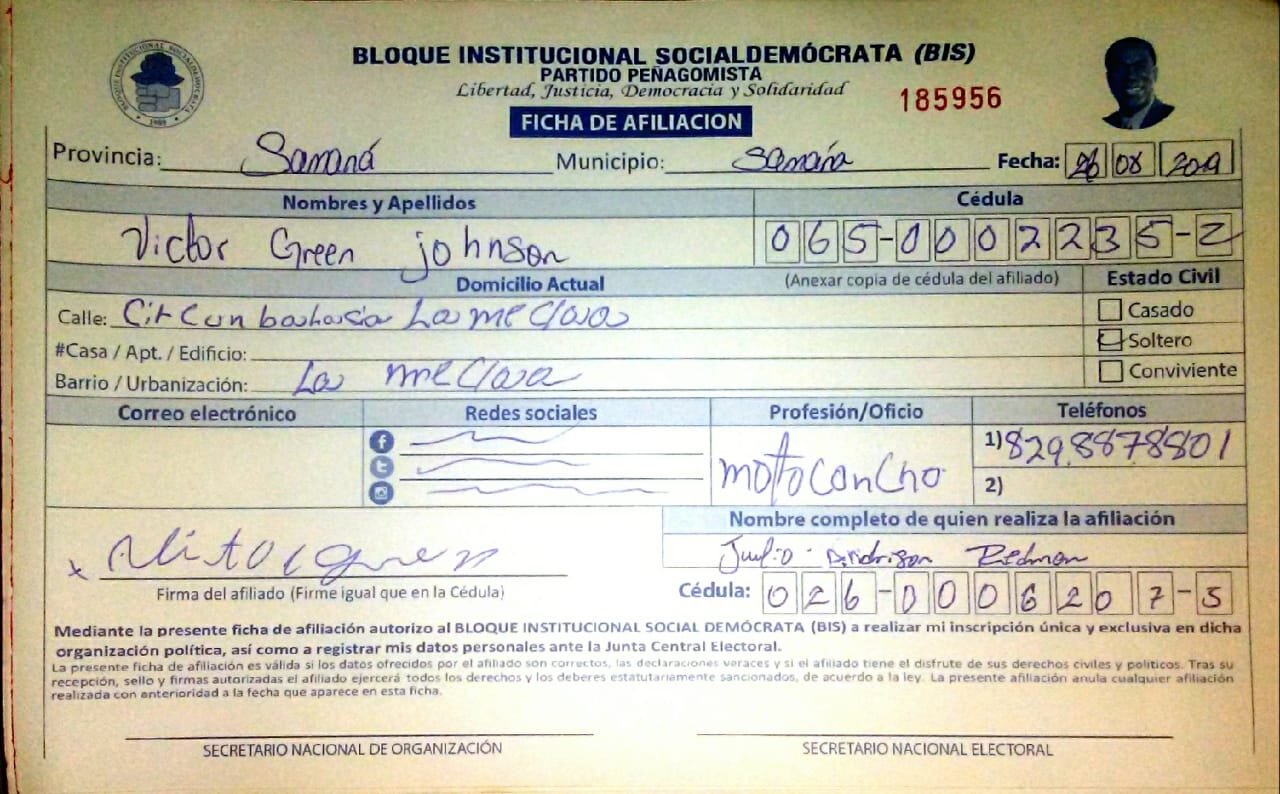 BLOQUE INSTITUCIONAL SOCIALDEMÓCRATA (BIS)
PARTIDO PEÑAGOMISTA
Libertad, Justicia, Democracia y Solidaridad
185956
FICHA DE AFILIACION
Provincia: Samaná Municipio: Samaná Fecha: 26 08 2019
Nombres y Apellidos Cédula
Victor Green johnson 065-0002235-2
Domicilio Actual (Anexar copia de cédula del afiliado) Estado Civil
Calle: La meClaa Casado
#Casa / Apt. / Edificio: Soltero
Barrio / Urbanización: La meClaa Conviviente
Correo electrónico Redes sociales Profesión/Oficio Teléfonos
motoconcho 1) 829.8878801
2)
Nombre completo de quien realiza la afiliación
Julio Redman
Firma del afiliado (Firme igual que en la Cédula) Cédula: 026-0006207-5
Mediante la presente ficha de afiliación autorizo al BLOQUE INSTITUCIONAL SOCIAL DEMÓCRATA (BIS) a realizar mi inscripción única y exclusiva en dicha
organización política, así como a registrar mis datos personales ante la Junta Central Electoral.
La presente ficha de afiliación es válida si los datos ofrecidos por el afiliado son correctos, las declaraciones veraces y si el afiliado tiene el disfrute de sus derechos civiles y políticos. Tras su
recepción, sello y firmas autorizadas el afiliado ejercerá todos los derechos y los deberes estatutariamente sancionados, de acuerdo a la ley. La presente afiliación anula cualquier afiliación
realizada con anterioridad a la fecha que aparece en esta ficha.
SECRETARIO NACIONAL DE ORGANIZACIÓN SECRETARIO NACIONAL ELECTORAL